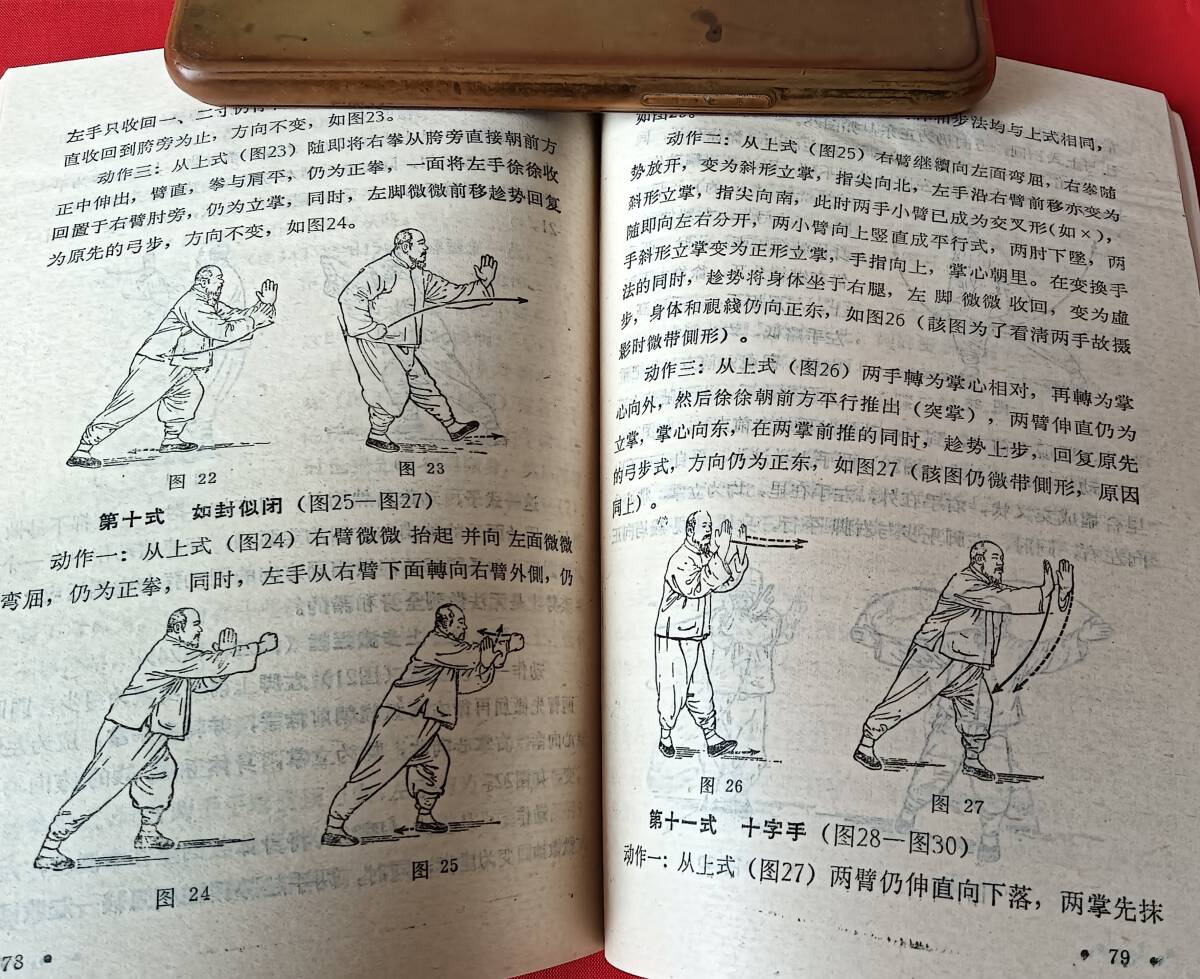 左手只收回一、二寸仍有
直收回到胯旁为止，方向不变，如图23。
动作三：从上式（图23）随即将右拳从胯旁直接朝前方
正中伸出，臂直，拳与肩平，仍为正拳，一面将左手徐徐收
回置于右臂肘旁，仍为立掌，同时，左脚微微前移趁势回复
为原先的弓步，方向不变，如图24。
图 22
图 23
第十式 如封似闭（图25—图27）
动作一：从上式（图24）右臂微微 抬起 并向 左面微微
弯屈，仍为正拳，同时，左手从右臂下面轉向右臂外側，仍
图 24
图 25
73
和步法均与上式相同，
动作二：从上式（图25）右臂继續向左面弯屈，右拳随
势放开，变为斜形立掌，指尖向北，左手沿右臂前移亦变为
斜形立掌，指尖向南，此时两手小臂已成为交叉形(如×)，
随即向左右分开，两小臂向上竪直成平行式，两肘下墜，两
手斜形立掌变为正形立掌，手指向上，掌心朝里。在变换手
法的同时，趁势将身体坐于右腿，左 脚 微微 收回，变为虚
步，身体和視綫仍向正东，如图26（該图为了看清两手故摄
影时微带側形）。
动作三：从上式（图26）两手轉为掌心相对，再轉为掌
心向外，然后徐徐朝前方平行推出（突掌），两臂伸直仍为
立掌，掌心向东，在两掌前推的同时，趁势上步，回复原先
的弓步式，方向仍为正东，如图27（該图仍微带側形，原因
同上）。
图 26
图 27
第十一式 十字手（图28—图30）
动作一：从上式（图27）两臂仍伸直向下落，两掌先抹
79